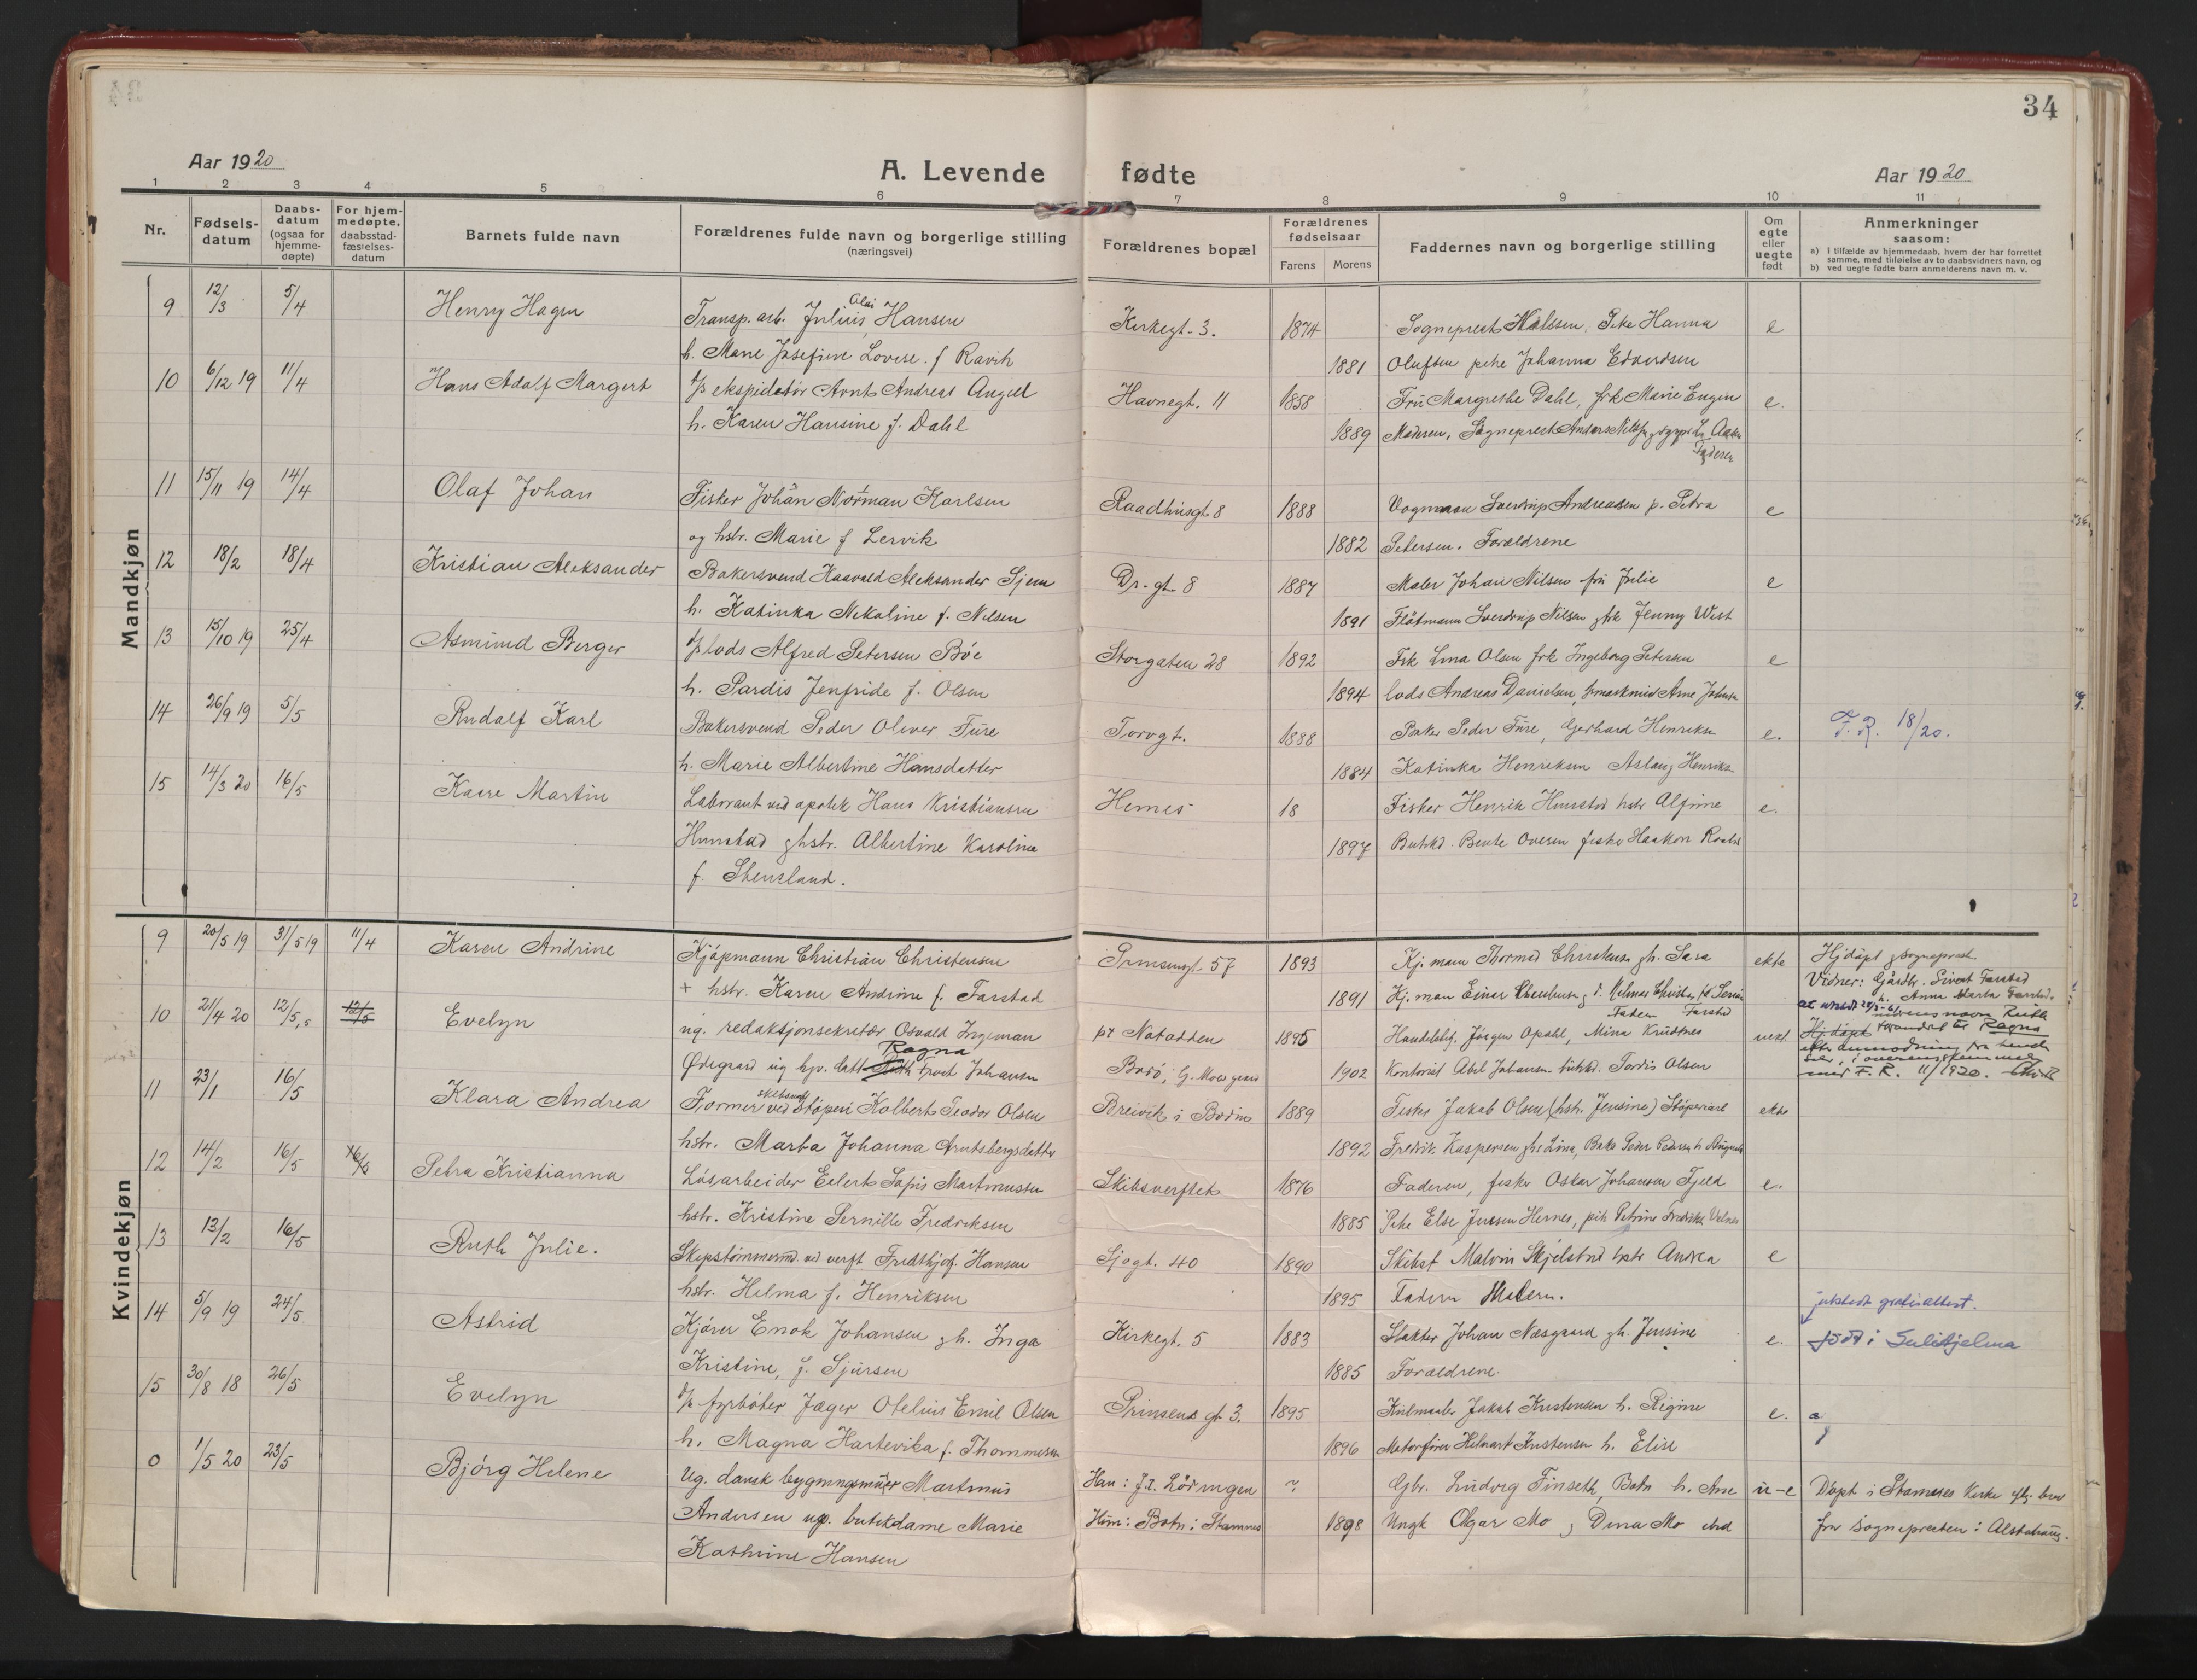 34
Aar 1920
A. Levende fødte
Aar 1920
1 2 3 4 5 6 7 8 9 10 11
Nr.
Fødsels-datum
Daabs-datum (ogsaa for hjemme-døpte)
For hjem-medøpte, daabsstad-fæstelses-datum
Barnets fulde navn
Forældrenes fulde navn og borgerlige stilling (næringsvei)
Forældrenes bopæl
Forældrenes fødselsaar
Farens Morens
Faddernes navn og borgerlige stilling
Om egte eller uegte født
Anmerkninger saasom:
a) i tilfælde av hjemmedaab, hvem der har forrettet samme, med tilføielse av to daabsvidners navn, og
b) ved uegte fødte barn anmelderens navn m. v.
Mandkjøn
9 12/3 5/4 Henry Hagen Transp. arb. Julius Hansen Kirkegt. 3. 1874 Sogneprest Nilssen, Pike Hanna e
h. Marie Josefine Lovise. f Ravik 1881 Olufsen pike Johanna Edvardsen
10 6/12 19 11/4 Hans Adolf Margert d/s ekspeditør Arnt Andreas Angell Havnegt. 11 1858 Fru Margrethe Dahl, frk Marie Engen e.
h. Karen Hansine f. Dahl 1889 Madsen, Sogneprest Anders Nilssen
Faderen
11 15/11 19 14/4 Olaf Johan Fisker Johan Norman Karlsen Raadhusgt 8 1888 Vognman Sverdrup Andreassen p. Petra e
og hstr. Marie f Lervik 1882 Petersen. Forældrene
12 18/2 18/4 Kristian Aleksander Bakersvend Haavald Aleksander Sjem Dr.-gt 8 1887 Maler Johan Nilsen fru Julie e
h. Katinka Nikoline f. Nilsen 1891 Flötmann Sverdrup Nilsen frk Jenny West
13 15/10 19 25/4 Asmund Berger d/s lods Alfred Petersen Böe Storgaten 28 1892 Frk Lina Olsen frk Ingeborg Petersen e
h. Pardis Jenfride f. Olsen 1894 lods Andreas Danielsen, Arne Johnsen
14 26/9 19 5/5 Rudolf Karl Bakersvend Peder Oliver Fure Torvgt. 1888 Baker Peder Fure, Gerhard Henriksen e. F. R. 18/20.
h. Marie Albertine Hansdatter 1884 Katinka Henriksen Aslaug Henriksen
15 14/3 20 16/5 Kaare Martin Laborant ved apotek Hans Kristiansen Hernes 18 Fisker Henrik Hunstad hstr Alfine e.
Hunstad ghstr. Albertine Karoline 1897 Bente Ovesen fisker Haakon
f. Stensland.
Kvindekjøn
9 20/5 19 31/5 19 11/4 Karen Andrine Kjøpmann Christian Christensen Prinsensgt. 57 1893 Kj. mann Thormod Christensen gh. Sara ekte Hjdøpt sogneprest
+ hstr. Karen Andrine f. Farstad 1891 Kj. man Einar Christensen Vidner: Gårdbr. Sivert Farstad
h. Anna Marta Farstad.
10 21/4 20 12/5 12/5 Evelyn ug. redaktjonsekretær Osvald Ingeman pr Notodden 1895 Handelsbestj. Jørgen Opdahl, Mina Krudtnes uekt Hj. døpt
morens navn Ruth
forandret til Ragna
efter anmodning fra hende
selv, i overenstemmelse
med F. R. 11/1920.
Ragna
Ødegaard ug hjv. datt Ruth Tovet Johansen Bodö, G. Moes gaard 1902 Kontorist Abel Johansen butikd. Tordis Olsen
11 23/1 16/5 Klara Andrea Former ved Støperi Kolbert Teodor Olsen Breivik i Bodin 1889 Fisker Jakob Olsen (hstr. Jensine) Støperiarb ekte
hstr. Marta Johanna Arntsbergsdatter 1892 Fredrik Kaspersen gh. Lina, Baker Peder Pedersen h Augusta
12 14/2 16/5 16/5 Petra Kristianna Løsarbeider Eilert Sapis Martinussen Skibsverftet 1876 Faderen, fisker Oskar Johansen Fjeld e.
hstr. Kristine Pernille Fredriksen 1885 Pike Else Jensen Hernes, pike Petrine Fredrikke
13 13/2 16/5 Ruth Julie. Skipstømmermd. ved verft Fridthjof Hansen Sjøgt. 40 1890 Skibst Malvin Skjelstad hstr Andrea e
hstr. Helma f. Henriksen 1895 Faderen Moderen.
14 5/9 19 24/5 Astrid Kjører Enok Johansen gh. Inga Kirkegt. 5 1883 Slakter Johan Næsgaard gh. Jensine e. utstedt gratisattest.
født i Sulitjelma
Kristine, f. Sjursen 1885 Forældrene.
15 30/8 18 26/5 Evelyn d/s fyrbøter Jæger Otelius Emil Olsen Prinsens gt 3. 1895 Jakob Kristensen h. Regine e.
h. Magna Hartvika f. Thommesen 1896 Motorfører Helmart Kristensen h. Elise
0 1/5 20 23/5 Bjørg Helene Ug. dansk bygningsmurer Martinus Han: f.t. Lödingen ? Gbr. Ludvig Finseth, Botn h. Ane u-e Døpt i Stamnes Kirke eftr. brev
Andersen ug. butikdame Marie Hun: Botn i Stamnes 1898 Ungk Olgar Mo, Dina Mo fra sognepresten i Alstahaug.
Kathrine Hansen